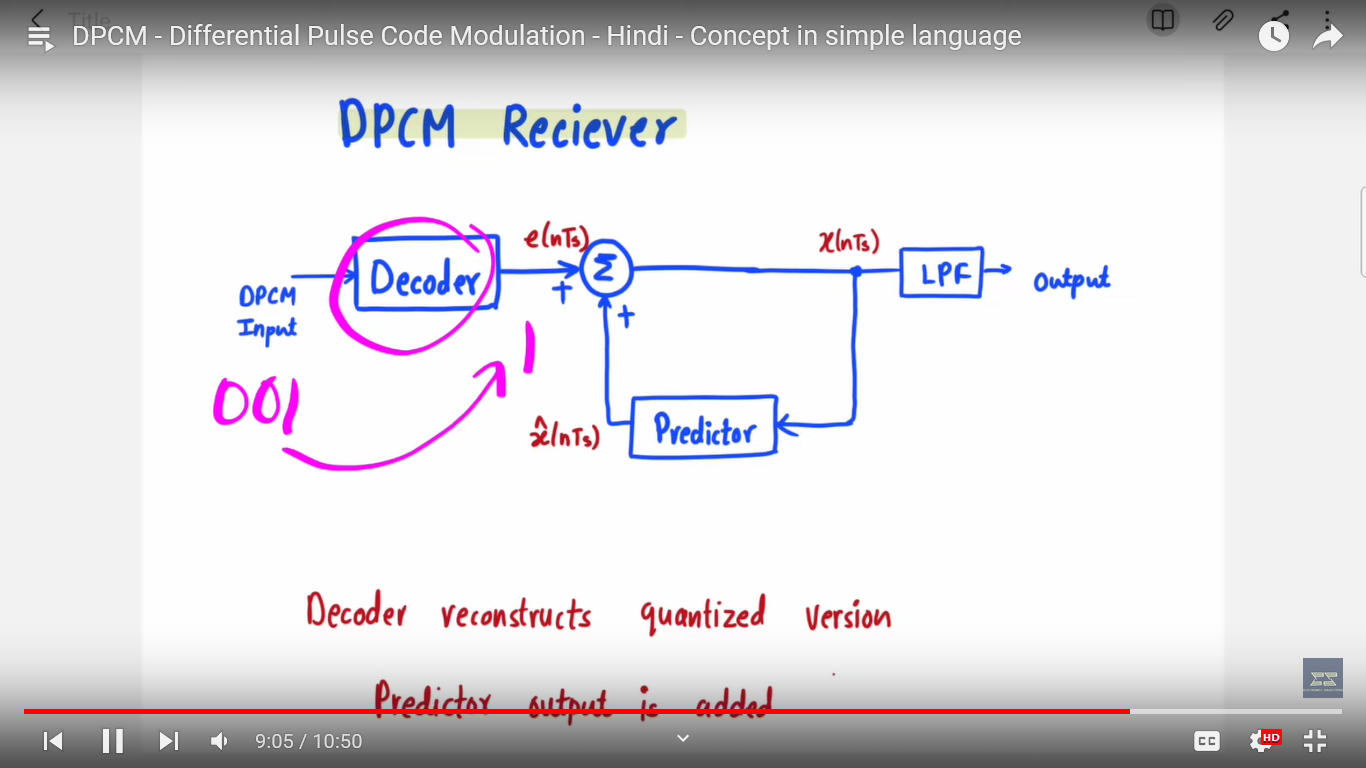 Title
DPCM - Differential Pulse Code Modulation - Hindi - Concept in simple language
DPCM Reciever
e(nTs)
x(nTs)
Decoder
Σ
LPF
Output
DPCM
Input
+
+
1
001
x̂(nTs)
Predictor
Decoder reconstructs quantized version
Predictor output is added
ES
9:05 / 10:50
CC
HD